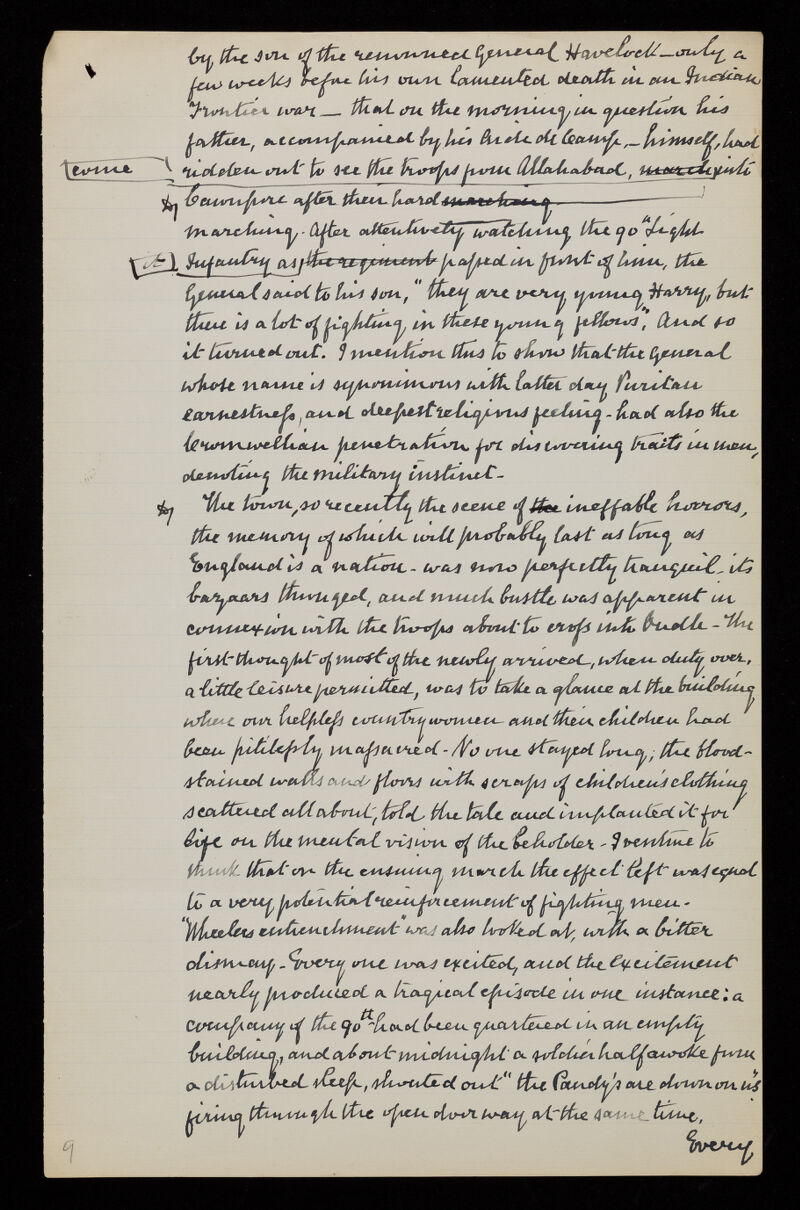 by the son of the renowned General Havelock – only a
few weeks before his own lamented death in an Indian
Frontier war – that on the morning in question his
father, accompanied by his Aide de Camp, – himself, had
come ridden out to see the troops from Allahabad, march into
Cawnpore after their hard marching
marching. After attentively watching the 90" Light
it Infantry as, the regiment passed in front of him, the
General said to his son, "they are very young Harry, but
there is a lot of fighting in these young fellows", And so
it turned out. I mention this to show that the General
whose name is synonimous with latter day Puritan
earnestness, and deepest religious feeling – had also the
Cromwellian penetration for discovering traits in men,
denoting the military instinct –
The town, so recently the scene of the ineffable horrors,
the memory of which will probably last as long as
England is a nation – was now perfectly tranquil – its
bazaars thronged, and much bustle was apparent in
connexion with the troops about to cross into Oudh – The
first thought of most of the newly arrived, when duty over,
a little leisure permitted, was to take a glance at the building
where our helpless countrywomen and their children had
been pitilessly massacred – No one stayed long; the blood-
stained walls and floors with scraps of children's clothing
scattered all about, told the tale and implanted it for
life on the mental vision of the beholder – I venture to
think that on the ensuing march the effect left was equal
to a very potential reinforcement of fighting men –
"Wheelers entrenchment" was also looked at, with a bitter
dismay – Every one was excited, and the excitement
nearly produced a tragical episode in one instance: a
company of the 90th had been quartered in an empty
building, and about midnight a soldier half awoke from
a disturbed sleep, shouted out "the Pandy's are down on us"
firing through the open door way at the same time.
Every
9